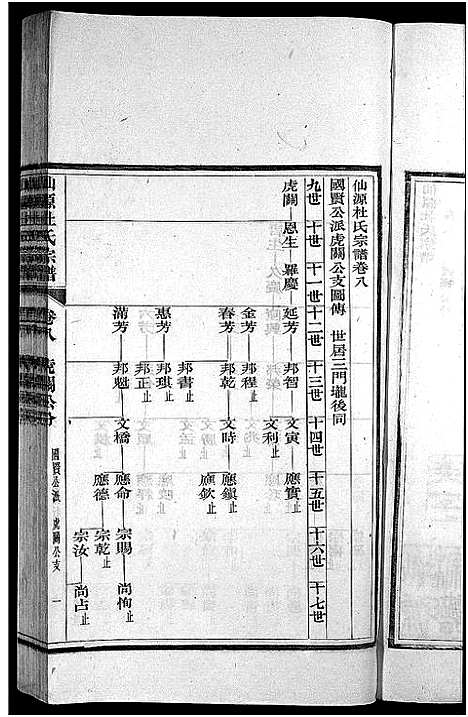 仙源杜氏宗譜卷八
國賢公派虎關公支圖傳 世居三門壠後同
九世 十世 十一世 十二世 十三世 十四世 十五世 十六世 十七世
虎關 恩生 羅慶 延芳 邦智 文寅 應實止
文利止
金芳 邦程止
春芳 邦乾 文時 應鎮止
應欽止
邦書止
惠芳 邦琪止
邦正止
滿芳 邦魁 文橋 應命 宗賜 尚恂止
應德 宗乾止
宗汝 尚占止
仙源杜氏宗譜 卷八 虎關公分 國賢公派 虎關公支 一